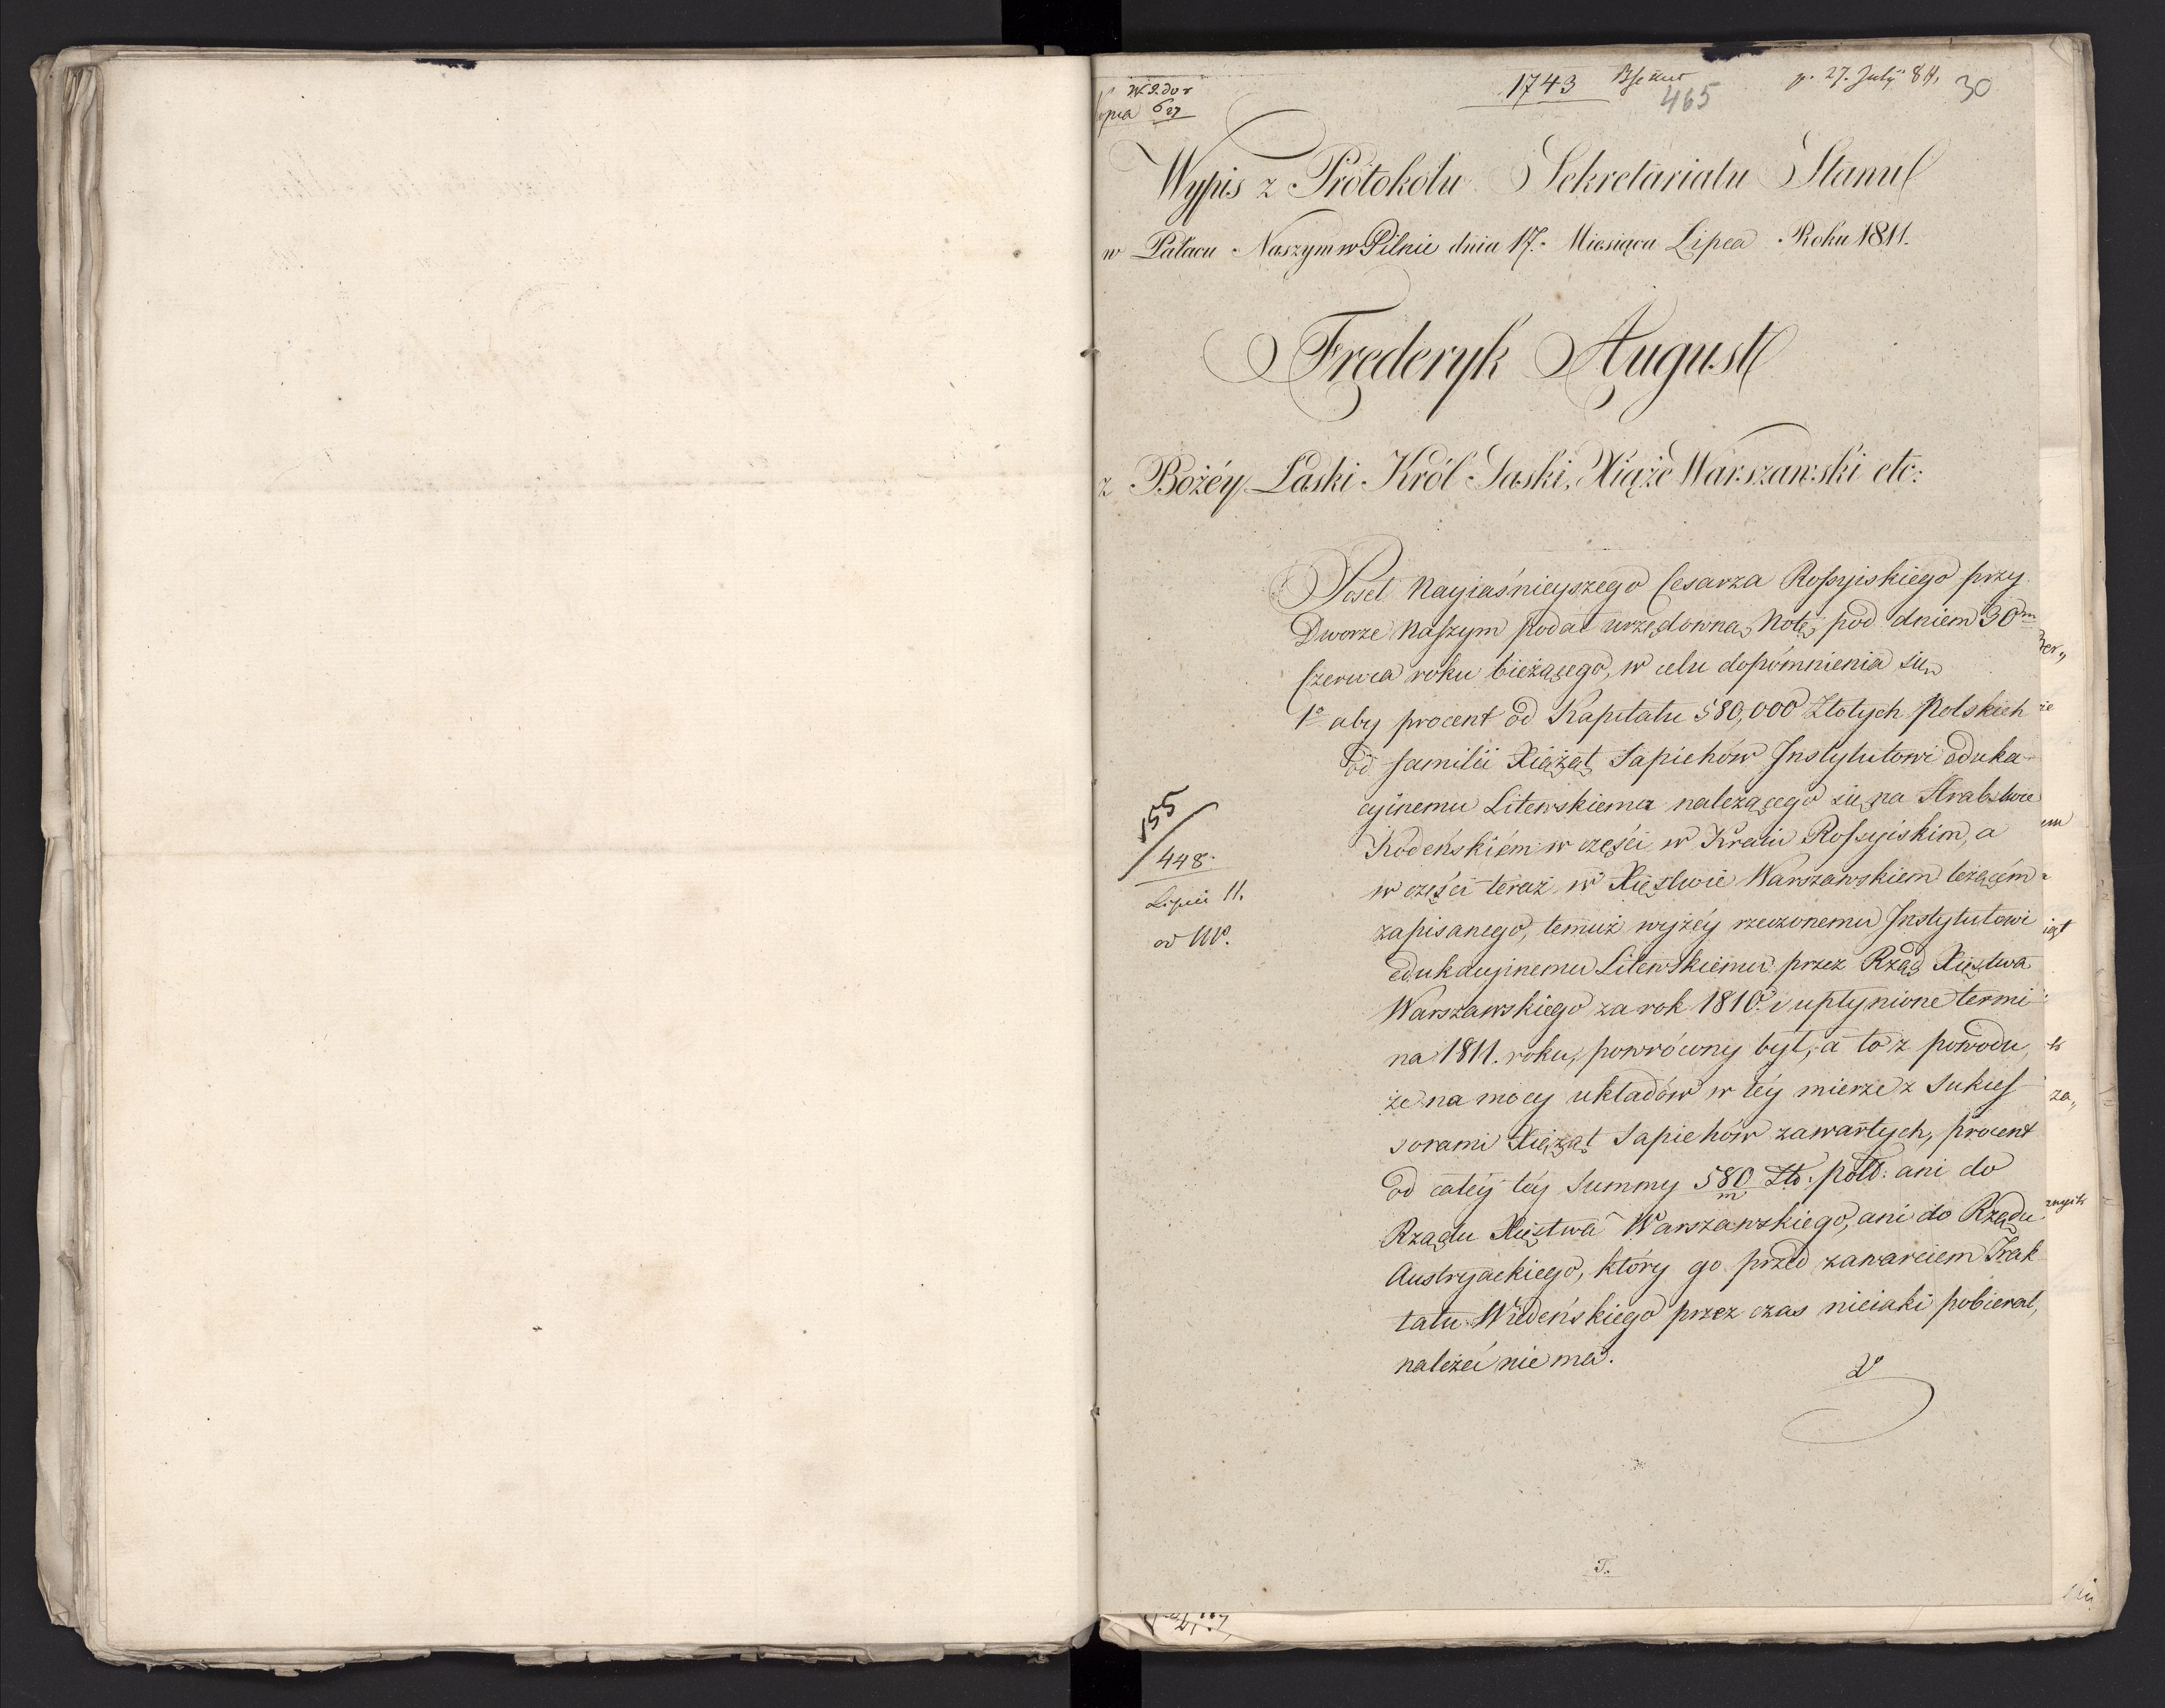 1743
465
p. 27. July 811.
30
Wypis z Protokołu Sekretariatu Stanu
w Pałacu Naszym w Pilnie dnia 17. Miesiąca Lipca Roku 1811.
Frederyk August
z Bożéy Łaski Król Saski, Xiąże Warszawski etc:
Poseł Nayiaśnieyszego Cesarza Rossyiskiego przy
Dworze Naszym podał urzędowną Notę pod dniem 30m
Czerwca roku bieżącego, w celu dopomnienia się
1o aby procent od Kapitału 580,000 Złotych Polskich
od familii Xiążąt Sapiehów Instytutowi eduka-
cyinemu Litewskiemu należącego się na Hrabstwie
Kodeńskiém w części w Kraiu Rossyiskim, a
w części teraz w Xięstwie Warszawskiem leżącém
zapisanego, temuż wyżéy rzeczonemu Instytutowi
edukacyinemu Litewskiemu przez Rząd Xięstwa
Warszawskiego za rok 1810. i upłynione termi-
na 1811. roku, powrócony był, a to z powodu,
że na mocy układów w téy mierze z Sukces-
sorami Xiążąt Sapiehów zawartych, procent
od całéy téy Summy 580 m Zło: pols: ani do
Rządu Xięstwa Warszawskiego, ani do Rządu
Austryackiego, który go przed zawarciem Trak-
tatu Wiedeńskiego przez czas nieiaki pobierał,
należeć nie ma.
155
448.
Lipca 11.
T.
za„